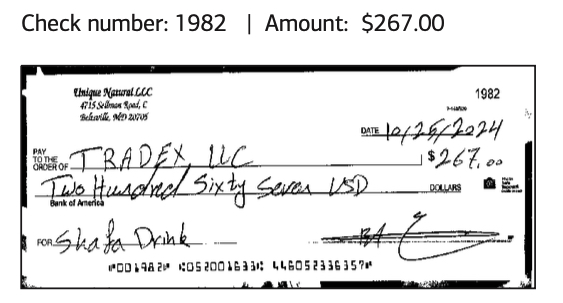 Check number: 1982 | Amount: $267.00
Unique Natural LLC
4715 Sellman Road, C
Beltsville, MD 20705
1982
DATE 10/25/2024
PAY TO THE ORDER OF TRADEX, LLC $267.00
Two Hundred Sixty Seven USD DOLLARS
Bank of America
FOR Shafa Drink
⑈001982⑈ ⑆052001633⑆ 446052336357⑈